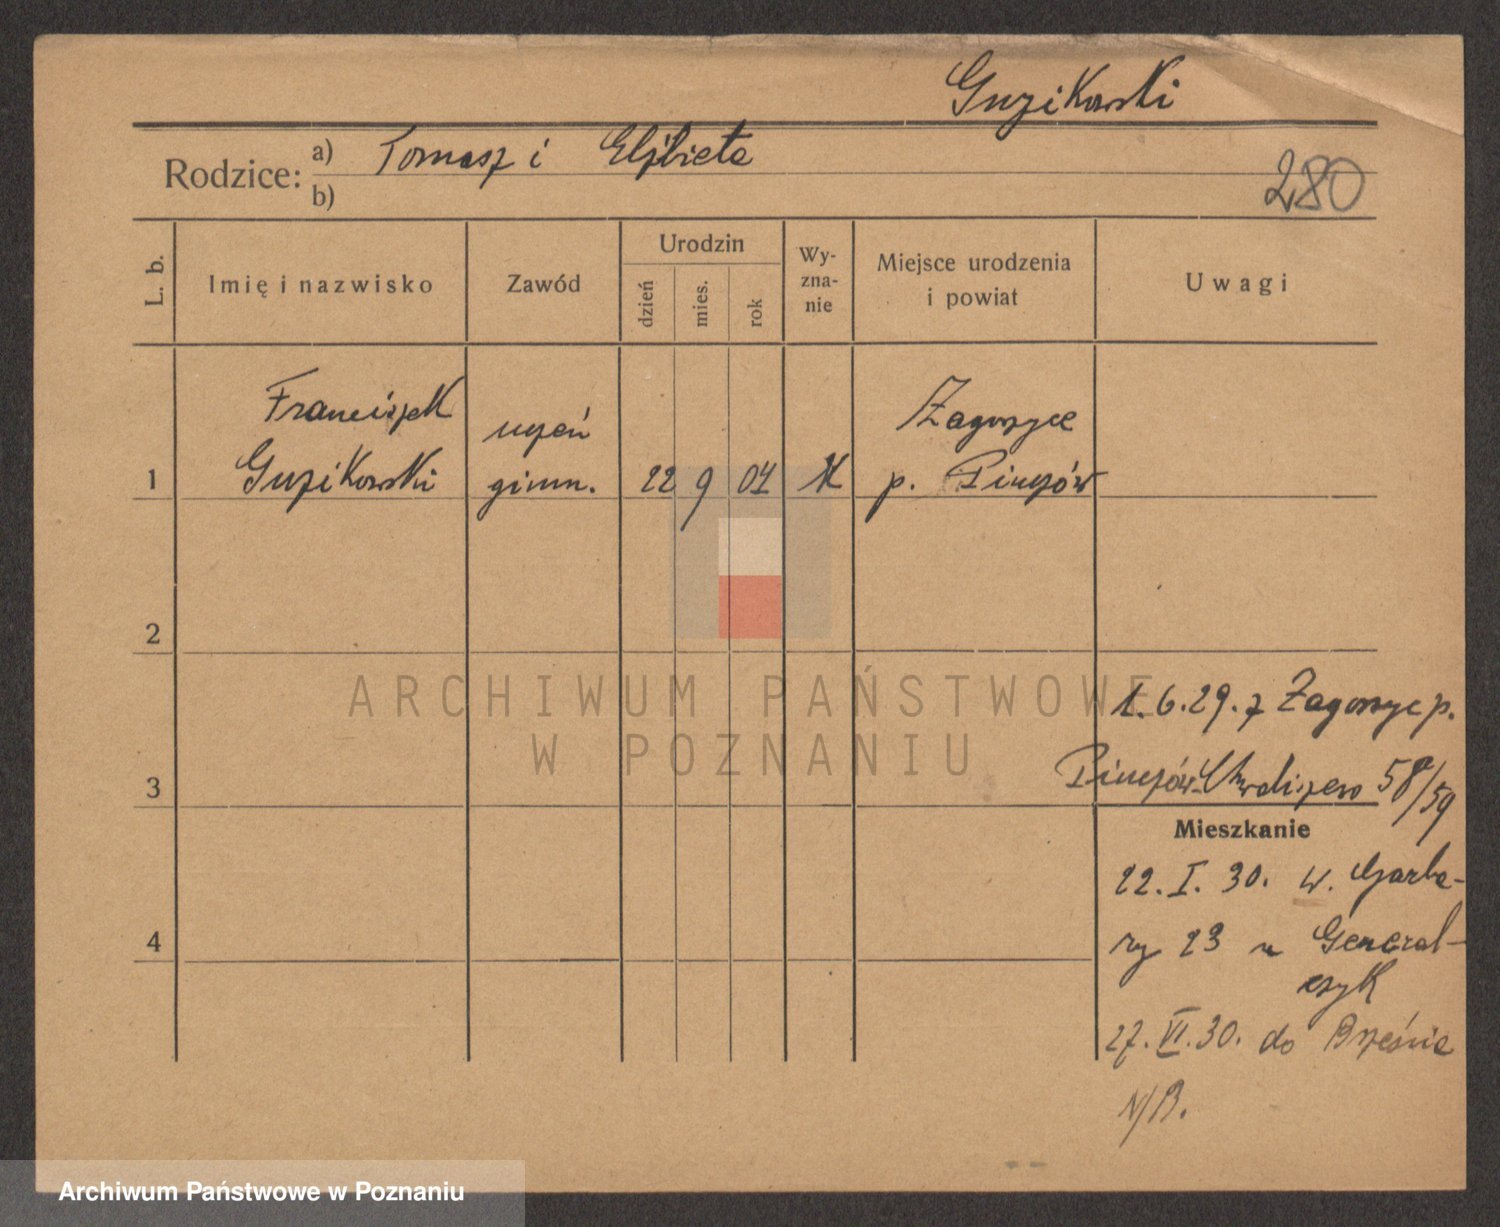 Guzikowski
Rodzice: a) Tomasz i Elżbieta
b)
280
L. b.
Imię i nazwisko
Zawód
Urodzin
dzień
mies.
rok
Wy-
zna-
nie
Miejsce urodzenia
i powiat
Uwagi
1
Franciszek
Guzikowski
uczeń
gimn.
22 9 07
K
Zagorzyce
p. Pinczów
2
3
4
1.6.29. z Zagorzyc p.
Pinczów. Chwaliszewo 58/59
Mieszkanie
22.I.30. w. Garba-
ry 23 u General-
czyk
27.VI.30. do Brzeście
n/B.
ARCHIWUM PAŃSTWOWE
W POZNANIU
Archiwum Państwowe w Poznaniu